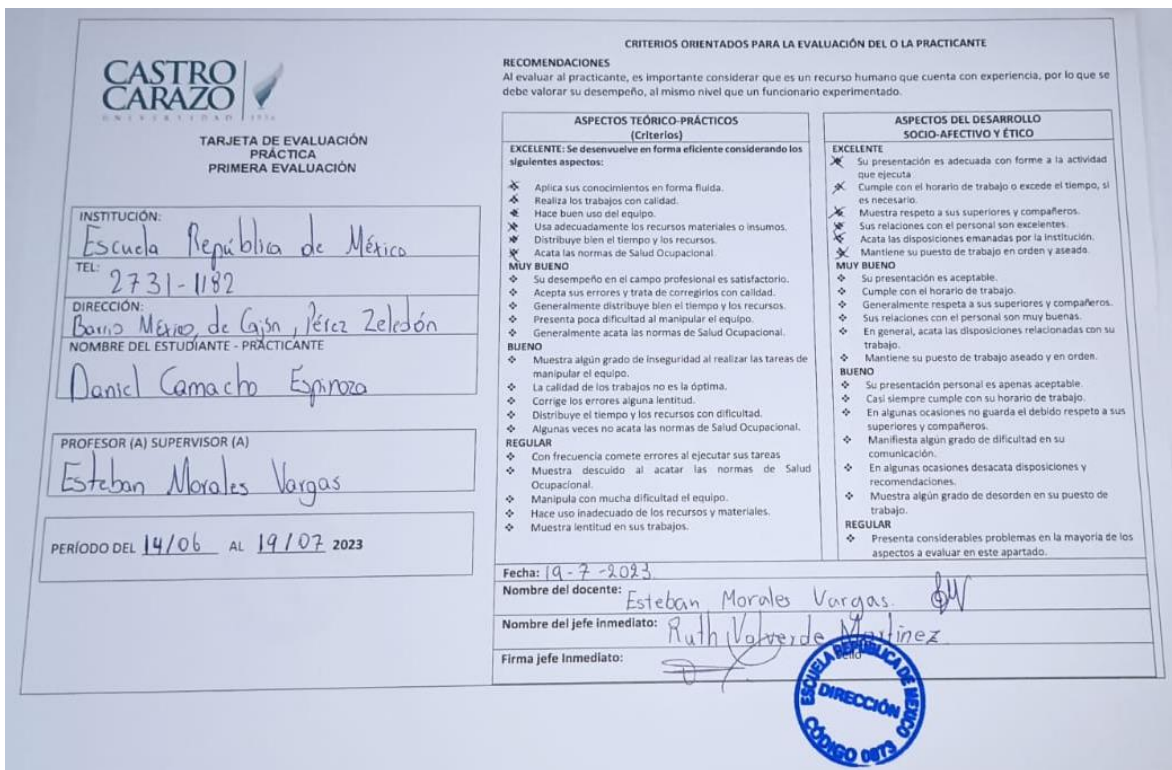 CASTRO
CARAZO
UNIVERSIDAD
TARJETA DE EVALUACIÓN
PRÁCTICA
PRIMERA EVALUACIÓN
INSTITUCIÓN:
Escuela República de México
TEL:
2731-1182
DIRECCIÓN:
Barrio México, de Cajón, Pérez Zeledón
NOMBRE DEL ESTUDIANTE - PRÁCTICANTE
Daniel Camacho Espinoza
PROFESOR (A) SUPERVISOR (A)
Esteban Morales Vargas
PERÍODO DEL 14/06 AL 19/07 2023
CRITERIOS ORIENTADOS PARA LA EVALUACIÓN DEL O LA PRACTICANTE
RECOMENDACIONES
Al evaluar al practicante, es importante considerar que es un recurso humano que cuenta con experiencia, por lo que se
debe valorar su desempeño, al mismo nivel que un funcionario experimentado.
ASPECTOS TEÓRICO-PRÁCTICOS
(Criterios)
EXCELENTE: Se desenvuelve en forma eficiente considerando los
siguientes aspectos:
Aplica sus conocimientos en forma fluida.
Realiza los trabajos con calidad.
Hace buen uso del equipo.
Usa adecuadamente los recursos materiales o insumos.
Distribuye bien el tiempo y los recursos.
Acata las normas de Salud Ocupacional.
MUY BUENO
Su desempeño en el campo profesional es satisfactorio.
Acepta sus errores y trata de corregirlos con calidad.
Generalmente distribuye bien el tiempo y los recursos.
Presenta poca dificultad al manipular el equipo.
Generalmente acata las normas de Salud Ocupacional.
BUENO
Muestra algún grado de inseguridad al realizar las tareas de
manipular el equipo.
La calidad de los trabajos no es la óptima.
Corrige los errores alguna lentitud.
Distribuye el tiempo y los recursos con dificultad.
Algunas veces no acata las normas de Salud Ocupacional.
REGULAR
Con frecuencia comete errores al ejecutar sus tareas
Muestra descuido al acatar las normas de Salud
Ocupacional.
Manipula con mucha dificultad el equipo.
Hace uso inadecuado de los recursos y materiales.
Muestra lentitud en sus trabajos.
ASPECTOS DEL DESARROLLO
SOCIO-AFECTIVO Y ÉTICO
EXCELENTE
Su presentación es adecuada con forme a la actividad
que ejecuta
Cumple con el horario de trabajo o excede el tiempo, si
es necesario.
Muestra respeto a sus superiores y compañeros.
Sus relaciones con el personal son excelentes.
Acata las disposiciones emanadas por la institución.
Mantiene su puesto de trabajo en orden y aseado.
MUY BUENO
Su presentación es aceptable.
Cumple con el horario de trabajo.
Generalmente respeta a sus superiores y compañeros.
Sus relaciones con el personal son muy buenas.
En general, acata las disposiciones relacionadas con su
trabajo.
Mantiene su puesto de trabajo aseado y en orden.
BUENO
Su presentación personal es apenas aceptable.
Casi siempre cumple con su horario de trabajo.
En algunas ocasiones no guarda el debido respeto a sus
superiores y compañeros.
Manifiesta algún grado de dificultad en su
comunicación.
En algunas ocasiones desacata disposiciones y
recomendaciones.
Muestra algún grado de desorden en su puesto de
trabajo.
REGULAR
Presenta considerables problemas en la mayoría de los
aspectos a evaluar en este apartado.
Fecha: 19-7-2023
Nombre del docente: Esteban Morales Vargas.
Nombre del jefe inmediato: Ruth Valverde Martinez
Firma jefe Inmediato:
ESCUELA REPÚBLICA DE MÉXICO
DIRECCIÓN
CÓDIGO 0873